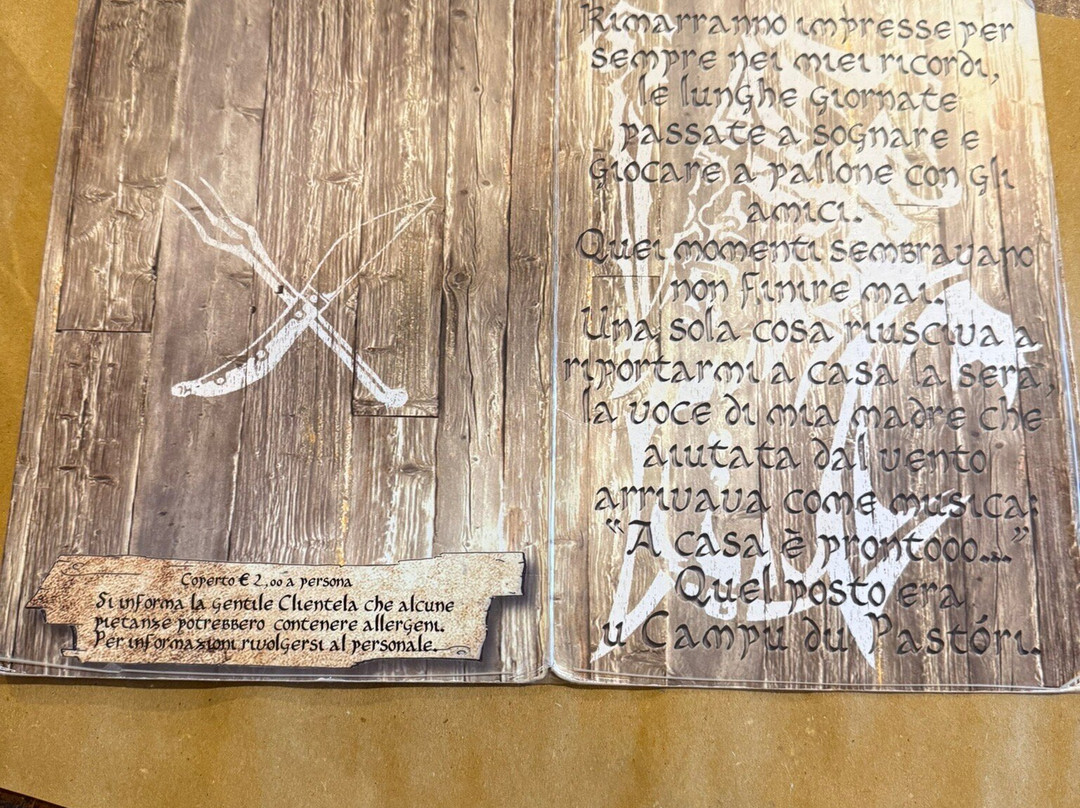 Coperto € 2,00 a persona
Si informa la gentile Clientela che alcune
pietanze potrebbero contenere allergeni.
Per informazioni rivolgersi al personale.
Rimarranno impresse per
sempre nei miei ricordi,
le lunghe giornate
passate a sognare e
giocare a pallone con gli
amici.
Quei momenti sembravano
non finire mai.
Una sola cosa riusciva a
riportarmi a casa la sera,
la voce di mia madre che
aiutata dal vento
arrivava come musica:
“A casa è prontooo...”
Quel posto era
u Campu du Pastóri.